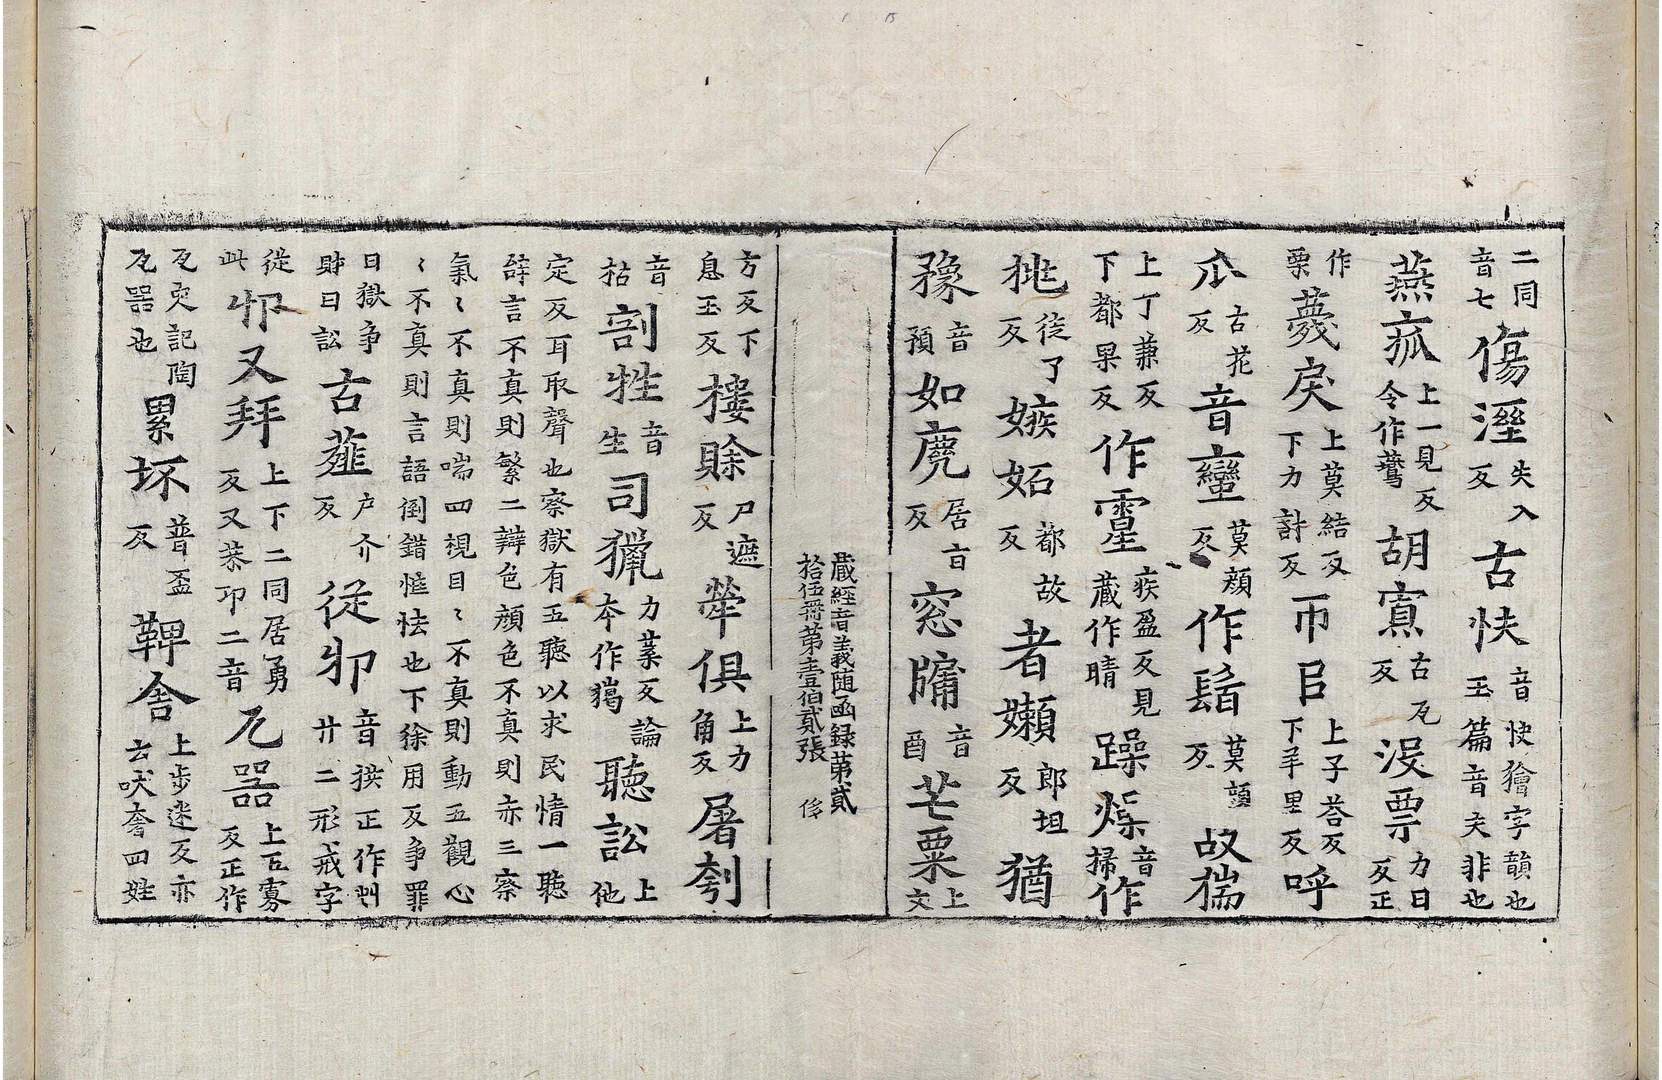 二同音七傷溼失入反古快音快獪字韻也玉篇音夫非也
燕孤上一見反令作鷰胡㝢古瓦反沒票力日反正
作栗蔑戾上莫結反下力計反帀㠯上子荅反下羊里反呼
瓜古花反音蠻莫顔反作髷莫頭反故㨢
上丁兼反下都果反作霊疾盈反見藏作晴躁㷮音掃作
挑徒了反嫉妬都故反者嬾郎坦反猶
豫音預如麂居旨反窓牖音酉芒粟上文
藏經音義随函録第貳
拾伍冊第壹伯貳張
方反下息玉反樓賖尸遮反犖俱上力角反屠刳
音枯剖牲音生司獵力葉反論本作獦聽訟上他
定反耳取聲也察獄有五聽以求民情一聽
辝言不真則繁二辯色顔色不真則赤三察
氣〻不真則喘四視目〻不真則動五觀心
〻不真則言語倒錯恠怯也下徐用反争罪
曰獄争財曰訟古薤户介反從丱音拱正作艸廾二形戒字
從此丱又拜上下二同居勇反又恭卬二音瓦器上五寡反正作
瓦㕛記陶瓦器也累坏普盃反鞞舎上步迷反亦云吠奢四姓